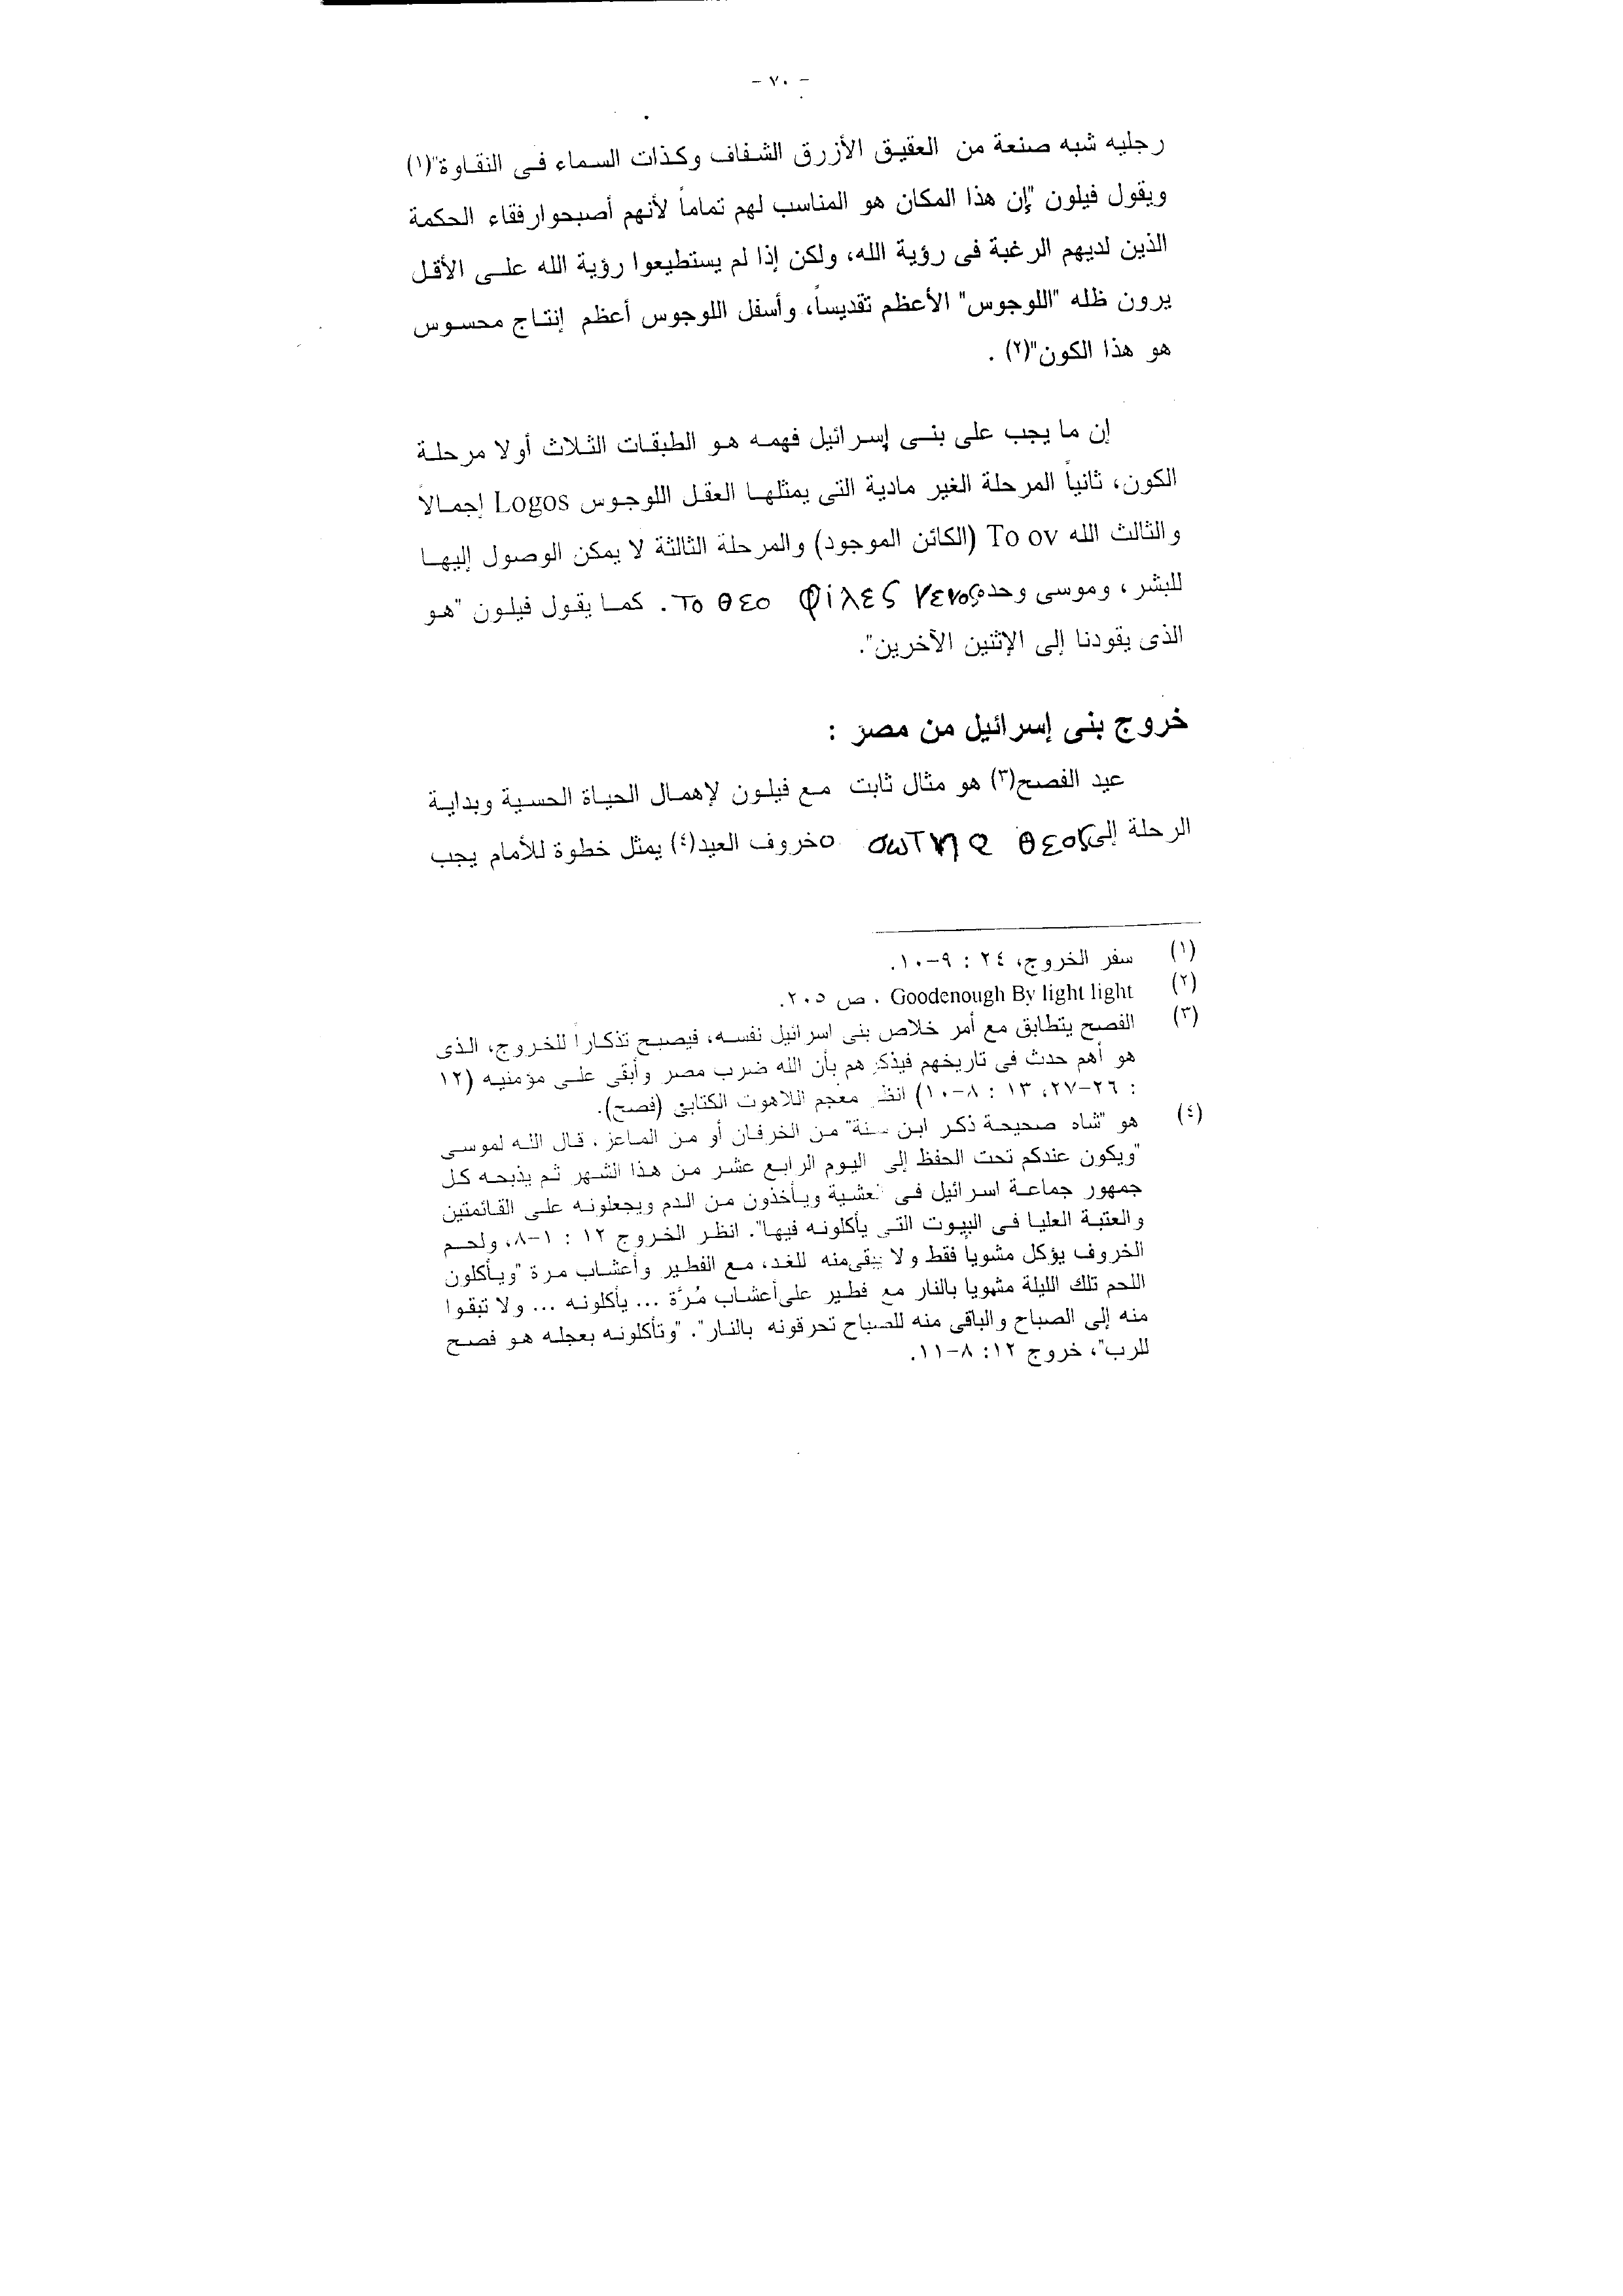 - ٧٠ -
رجليه شبه صنعة من العقيق الأزرق الشفاف وكذات السماء فى النقاوة"(١)
ويقول فيلون "إن هذا المكان هو المناسب لهم تماماً لأنهم أصبحوارفقاء الحكمة
الذين لديهم الرغبة فى رؤية الله، ولكن إذا لم يستطيعوا رؤية الله على الأقل
يرون ظله "اللوجوس" الأعظم تقديساً، وأسفل اللوجوس أعظم إنتاج محسوس
هو هذا الكون"(٢) .
إن ما يجب على بنى إسرائيل فهمه هو الطبقات الثلاث أولا مرحلة
الكون، ثانياً المرحلة الغير مادية التى يمثلها العقل اللوجوس Logos إجمالاً
والثالث الله To ov (الكائن الموجود) والمرحلة الثالثة لا يمكن الوصول إليها
للبشر، وموسى وحده το θεο φίλες γενος. كما يقول فيلون "هو
الذى يقودنا إلى الإثنين الآخرين".
خروج بنى إسرائيل من مصر :
عيد الفصح(٣) هو مثال ثابت مع فيلون لإهمال الحياة الحسية وبداية
الرحلة إلى ο σωτηρ θεος خروف العيد(٤) يمثل خطوة للأمام يجب
(١) سفر الخروج، ٢٤ : ٩-١٠.
(٢) Goodenough By light light . ص ٢٠٥.
(٣) الفصح يتطابق مع أمر خلاص بنى اسرائيل نفسه، فيصبح تذكاراً للخروج، الذى
هو أهم حدث فى تاريخهم فيذكرهم بأن الله ضرب مصر وأبقى على مؤمنيه (١٢
: ٢٦-٢٧، ١٣ : ٨-١٠) انظر معجم اللاهوت الكتابى (فصح).
(٤) هو "شاه صحيحة ذكر ابن سنة" من الخرفان أو من الماعز. قال الله لموسى
"ويكون عندكم تحت الحفظ إلى اليوم الرابع عشر من هذا الشهر ثم يذبحه كل
جمهور جماعة اسرائيل فى العشية ويأخذون من الدم ويجعلونه على القائمتين
والعتبة العليا فى البيوت التى يأكلونه فيها". انظر الخروج ١٢ : ١-٨، ولحم
الخروف يؤكل مشوياً فقط ولا يبقى منه للغد، مع الفطير وأعشاب مرة "ويأكلون
اللحم تلك الليلة مشويا بالنار مع فطير على أعشاب مُرَّة ... يأكلونه ... ولا تبقوا
منه إلى الصباح والباقى منه للصباح تحرقونه بالنار". "وتأكلونه بعجله هو فصح
للرب"، خروج ١٢: ٨-١١.